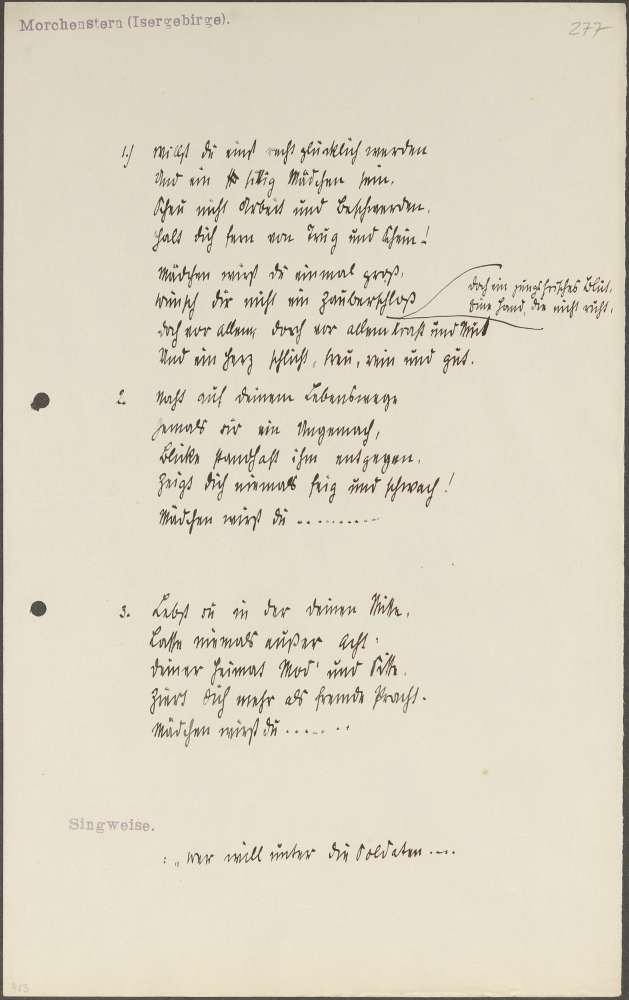 Morchenstern (Isergebirge).
277
1.) Willst du einst recht glücklich werden
Und ein sittig Mädchen sein,
Scheu nicht Arbeit und Beschwerden,
Halt dich fern von Trug und Schein!
Mädchen wirst du einmal groß,
Wünsch dir nicht ein Zauberschloß
doch ein jungfrisches Blut,
Eine Hand, die nicht ruht,
doch vor allem, doch vor allem Kraft und Mut
Und ein Herz schlicht, treu, rein und gut.
2. Naht auf deinem Lebenswege
Jemals dir ein Ungemach,
Blicke standhaft ihm entgegen,
Zeigt dich niemals feig und schwach!
Mädchen wirst du ..........
3. Lebst du in der deinen Mitte,
Lasse niemals außer Acht:
Deiner Heimat Mod' und Sitte
Ziert dich mehr als fremde Pracht.
Mädchen wirst du .......
Singweise.
: „Wer will unter die Soldaten ....
413